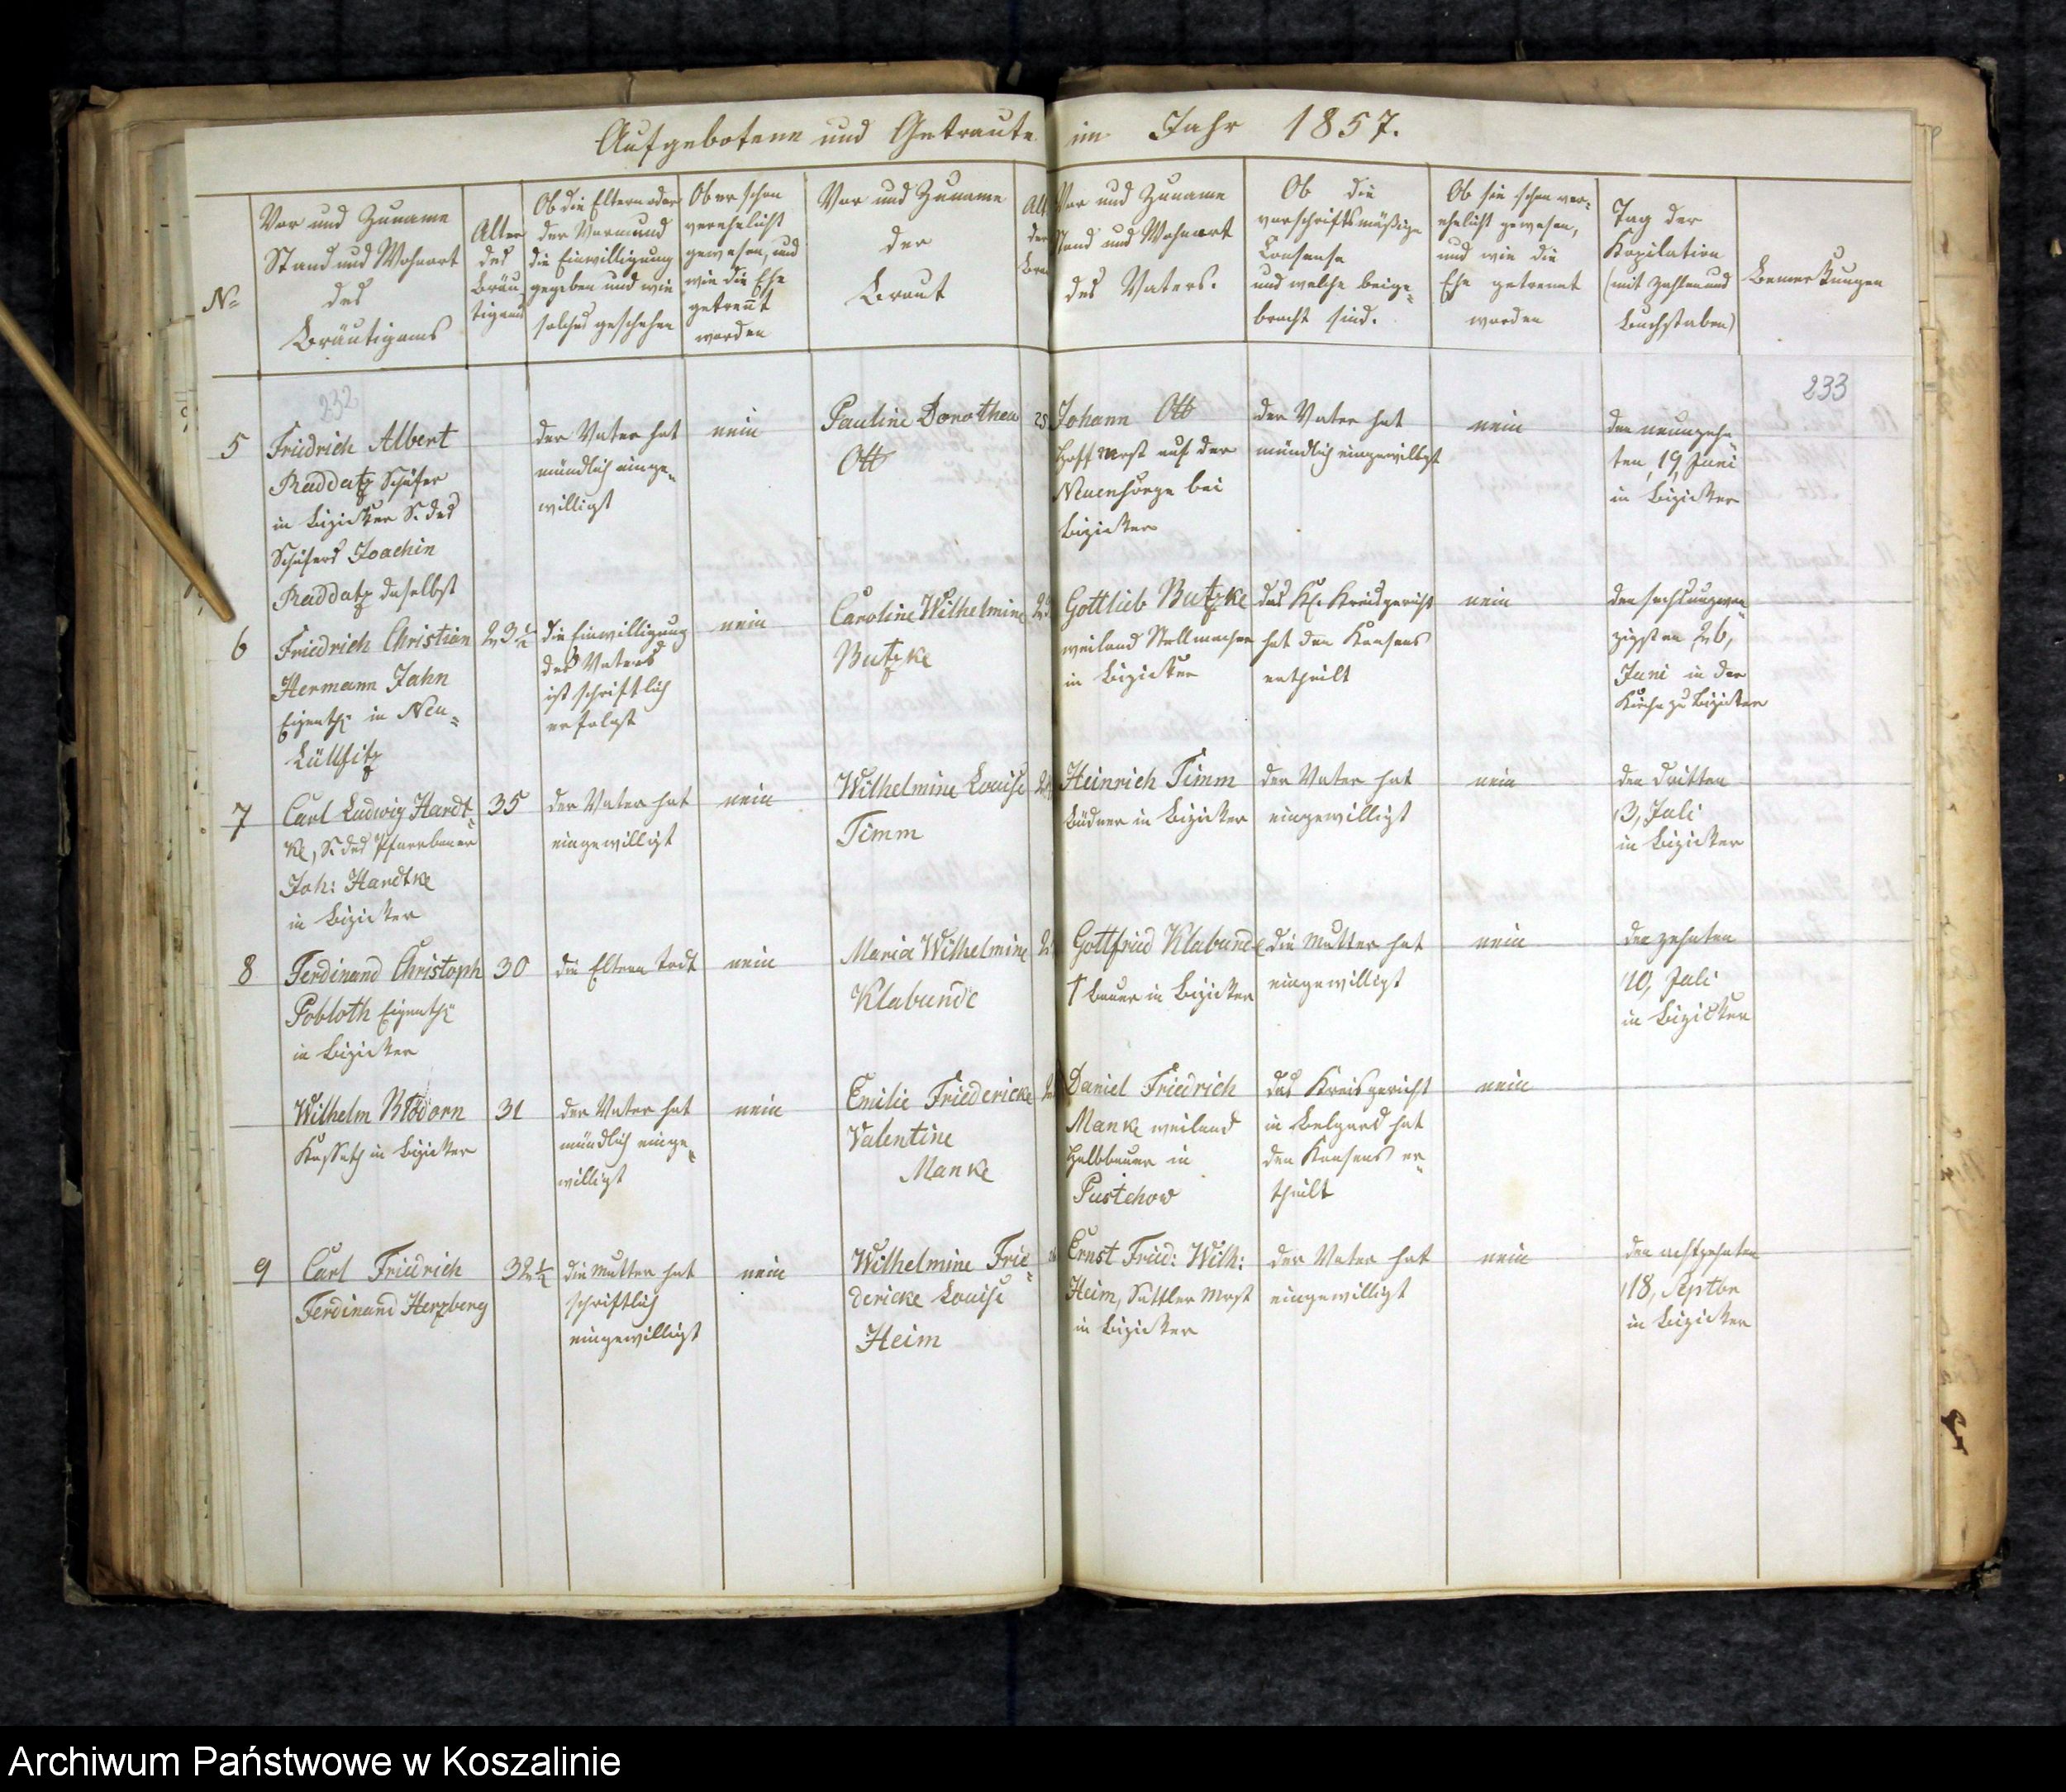 Aufgebotene und Getraute im Jahr 1857.
No
Vor und Zuname
Stand und Wohnort
des
Bräutigams
Alter
des
Bräu
tigams
Ob die Eltern oder
der Vormund
die Einwilligung
gegeben und wie
solches geschehen
Ob er schon
verehelicht
gewesen, und
wie die Ehe
getrennt
worden
Vor und Zuname
der
Braut
Alt
der
Brau
Vor und Zuname
Stand und Wohnort
des Vaters.
Ob die
vorschriftsmäßige
Consense
und welche beige-
bracht sind.
Ob sie schon ver-
ehelicht gewesen,
und wie die
Ehe getrennt
worden
Tag der
Kopilation
(mit Zahlen und
Buchstaben)
Bemerkungen
232
233
5
Friedrich Albert
Raddatz Schäfer
in Bizicker S. des
Schäfers Joachim
Raddatz daselbst
der Vater hat
mündlich einge-
willigt
nein
Pauline Dorothea
Ott
25
Johann Ott
auf der
Neuensorge bei
Bizicker
der Vater hat
mündlich eingewilligt
nein
den neunzehn
ten, 19, Juni
in Bizicker
6
Friedrich Christian
Hermann Jahn
Eigenth. in Neu-
Lülfitz
23 1/2
die Einwilligung
des Vaters
ist schriftlich
erfolgt
nein
Caroline Wilhelmine
Butzke
Gottlieb Butzke
weiland Stellmacher
in Bizicker
das Kgl. Kreisgericht
hat den Konsens
ertheilt
nein
den sechsundzwan
zigsten 26,
Juni in der
Kirche zu Bizicker
7
Carl Ludwig Hardt-
ke, S. des Pfarrbauer
Joh: Hardtke
in Bizicker
35
der Vater hat
eingewilligt
nein
Wilhelmine Louise
Timm
Heinrich Timm
Büdner in Bizicker
der Vater hat
eingewilligt
nein
den dritten
3, Juli
in Bizicker
8
Ferdinand Christoph
Pobloth Eigenth.
in Bizicker
30
die Eltern todt
nein
Maria Wilhelmine
Klabunde
Gottfried Klabunde
† Bauer in Bizicker
die Mutter hat
eingewilligt
nein
den zehnten
10, Juli
in Bizicker
Wilhelm
Kossath in Bizicker
31
der Vater hat
mündlich einge-
willigt
nein
Emilie Friedericke
Valentine
Manke
Daniel Friedrich
Manke weiland
Halbbauer in
Pustchow
das Kreisgericht
in Belgard hat
den Konsens er-
theilt
nein
9
Carl Friedrich
Ferdinand Herzberg
32 1/2
die Mutter hat
schriftlich
eingewilligt
nein
Wilhelmine Frie-
dericke Louise
Heim
Ernst Fried: Wilh:
Heim, Sattler Mstr
in Bizicker
der Vater hat
eingewilligt
nein
den achtzehnten
18, Septbr
in Bizicker
Archiwum Państwowe w Koszalinie